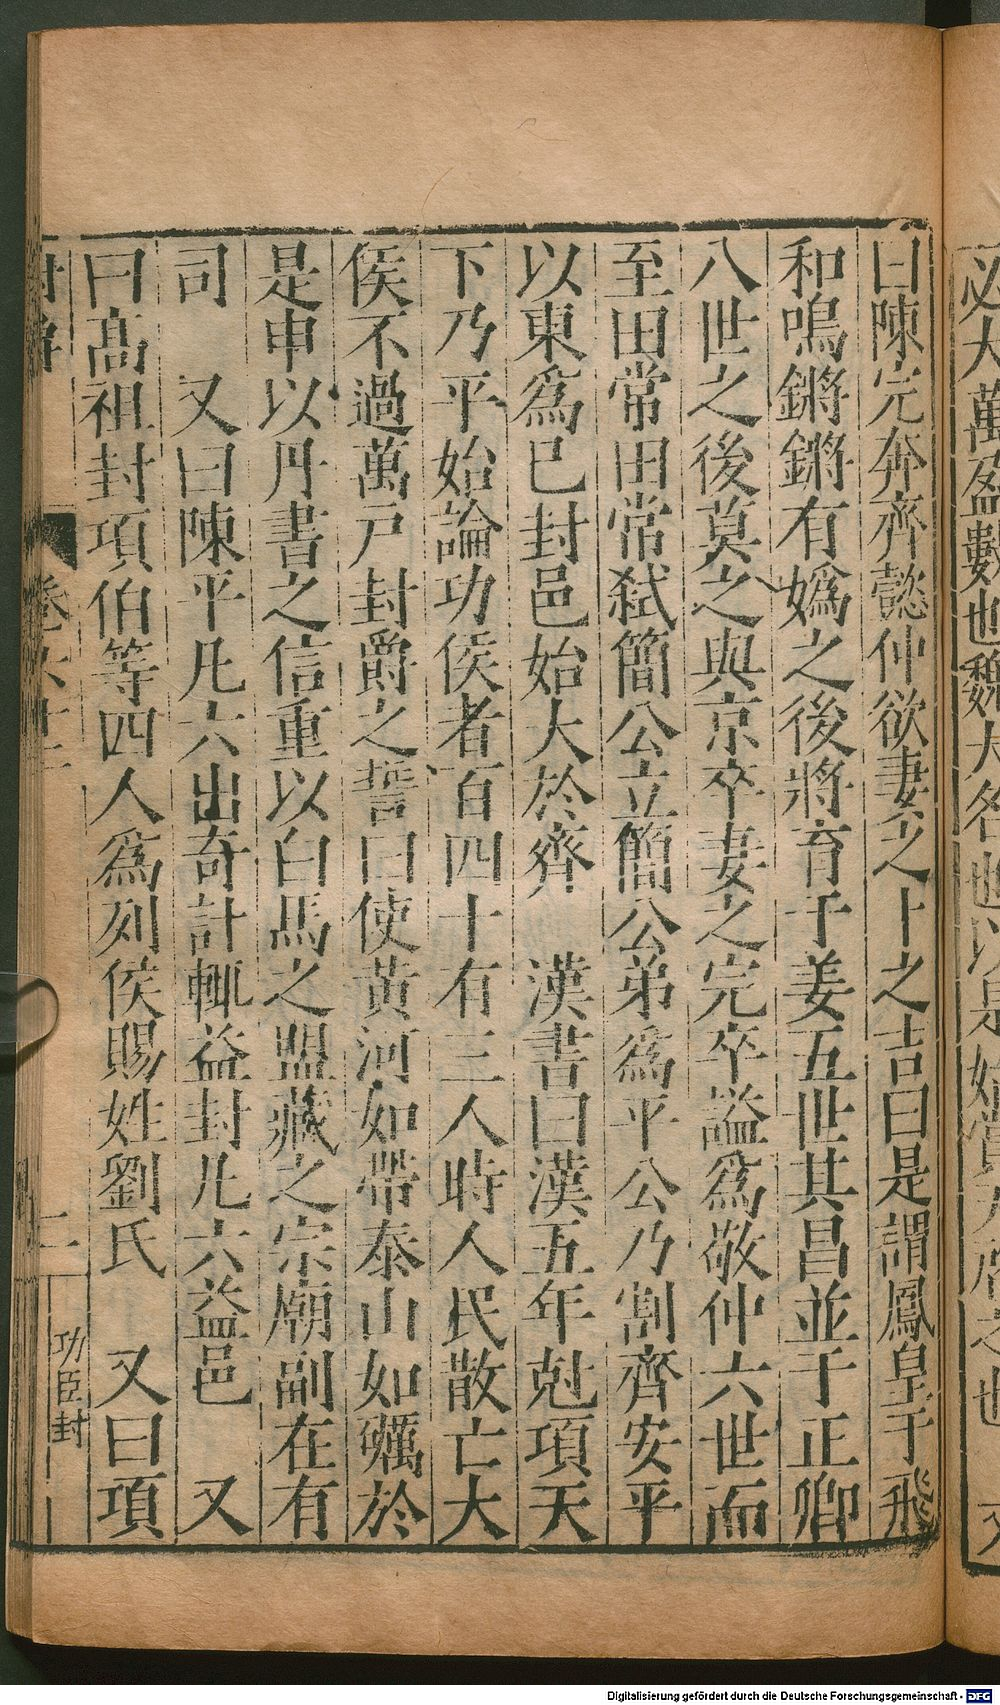 曰陳完奔齊懿仲欲妻之卜之吉曰是謂鳳皇于飛
和鳴鏘鏘有嬀之後將育于姜五世其昌並于正卿
八世之後莫之與京卒妻之完卒謚爲敬仲六世而
至田常田常弑簡公立簡公弟爲平公乃割齊安平
以東爲已封邑始大於齊　漢書曰漢五年尅項天
下乃平始論功侯者百四十有三人時人民散亡大
侯不過萬戸封爵之誓曰使黃河如帶泰山如礪於
是申以丹書之信重以白馬之盟藏之宗廟副在有
司　又曰陳平凡六出奇計輒益封凡六益邑　又
曰高祖封項伯等四人爲列侯賜姓劉氏　又曰項
封爵
二
功臣封
必大萬盈數也魏大名也以是始賞天啓之也　又
Digitalisierung gefördert durch die Deutsche Forschungsgemeinschaft - DFG